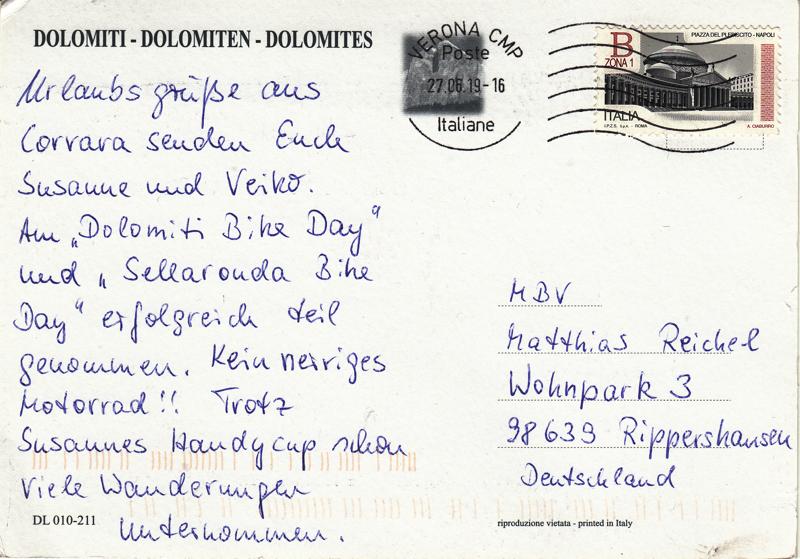 DOLOMITI - DOLOMITEN - DOLOMITES
Urlaubsgrüße aus
Corvara senden Euch
Susanne und Veiko.
Am „Dolomiti Bike Day"
und „Sellaronda Bike
Day" erfolgreich teil
genommen. Kein nerviges
Motorrad!! Trotz
Susannes Handycup schon
viele Wanderungen
unternommen.
DL 010-211
VERONA CMP
Poste
27.06.19-16
Italiane
B
ZONA 1
PIAZZA DEL PLEBISCITO - NAPOLI
ITALIA
I.P.Z.S. S.p.A. - ROMA
A. CIABURRO
MBV
Matthias Reichel
Wohnpark 3
98639 Rippershausen
Deutschland
riproduzione vietata - printed in Italy